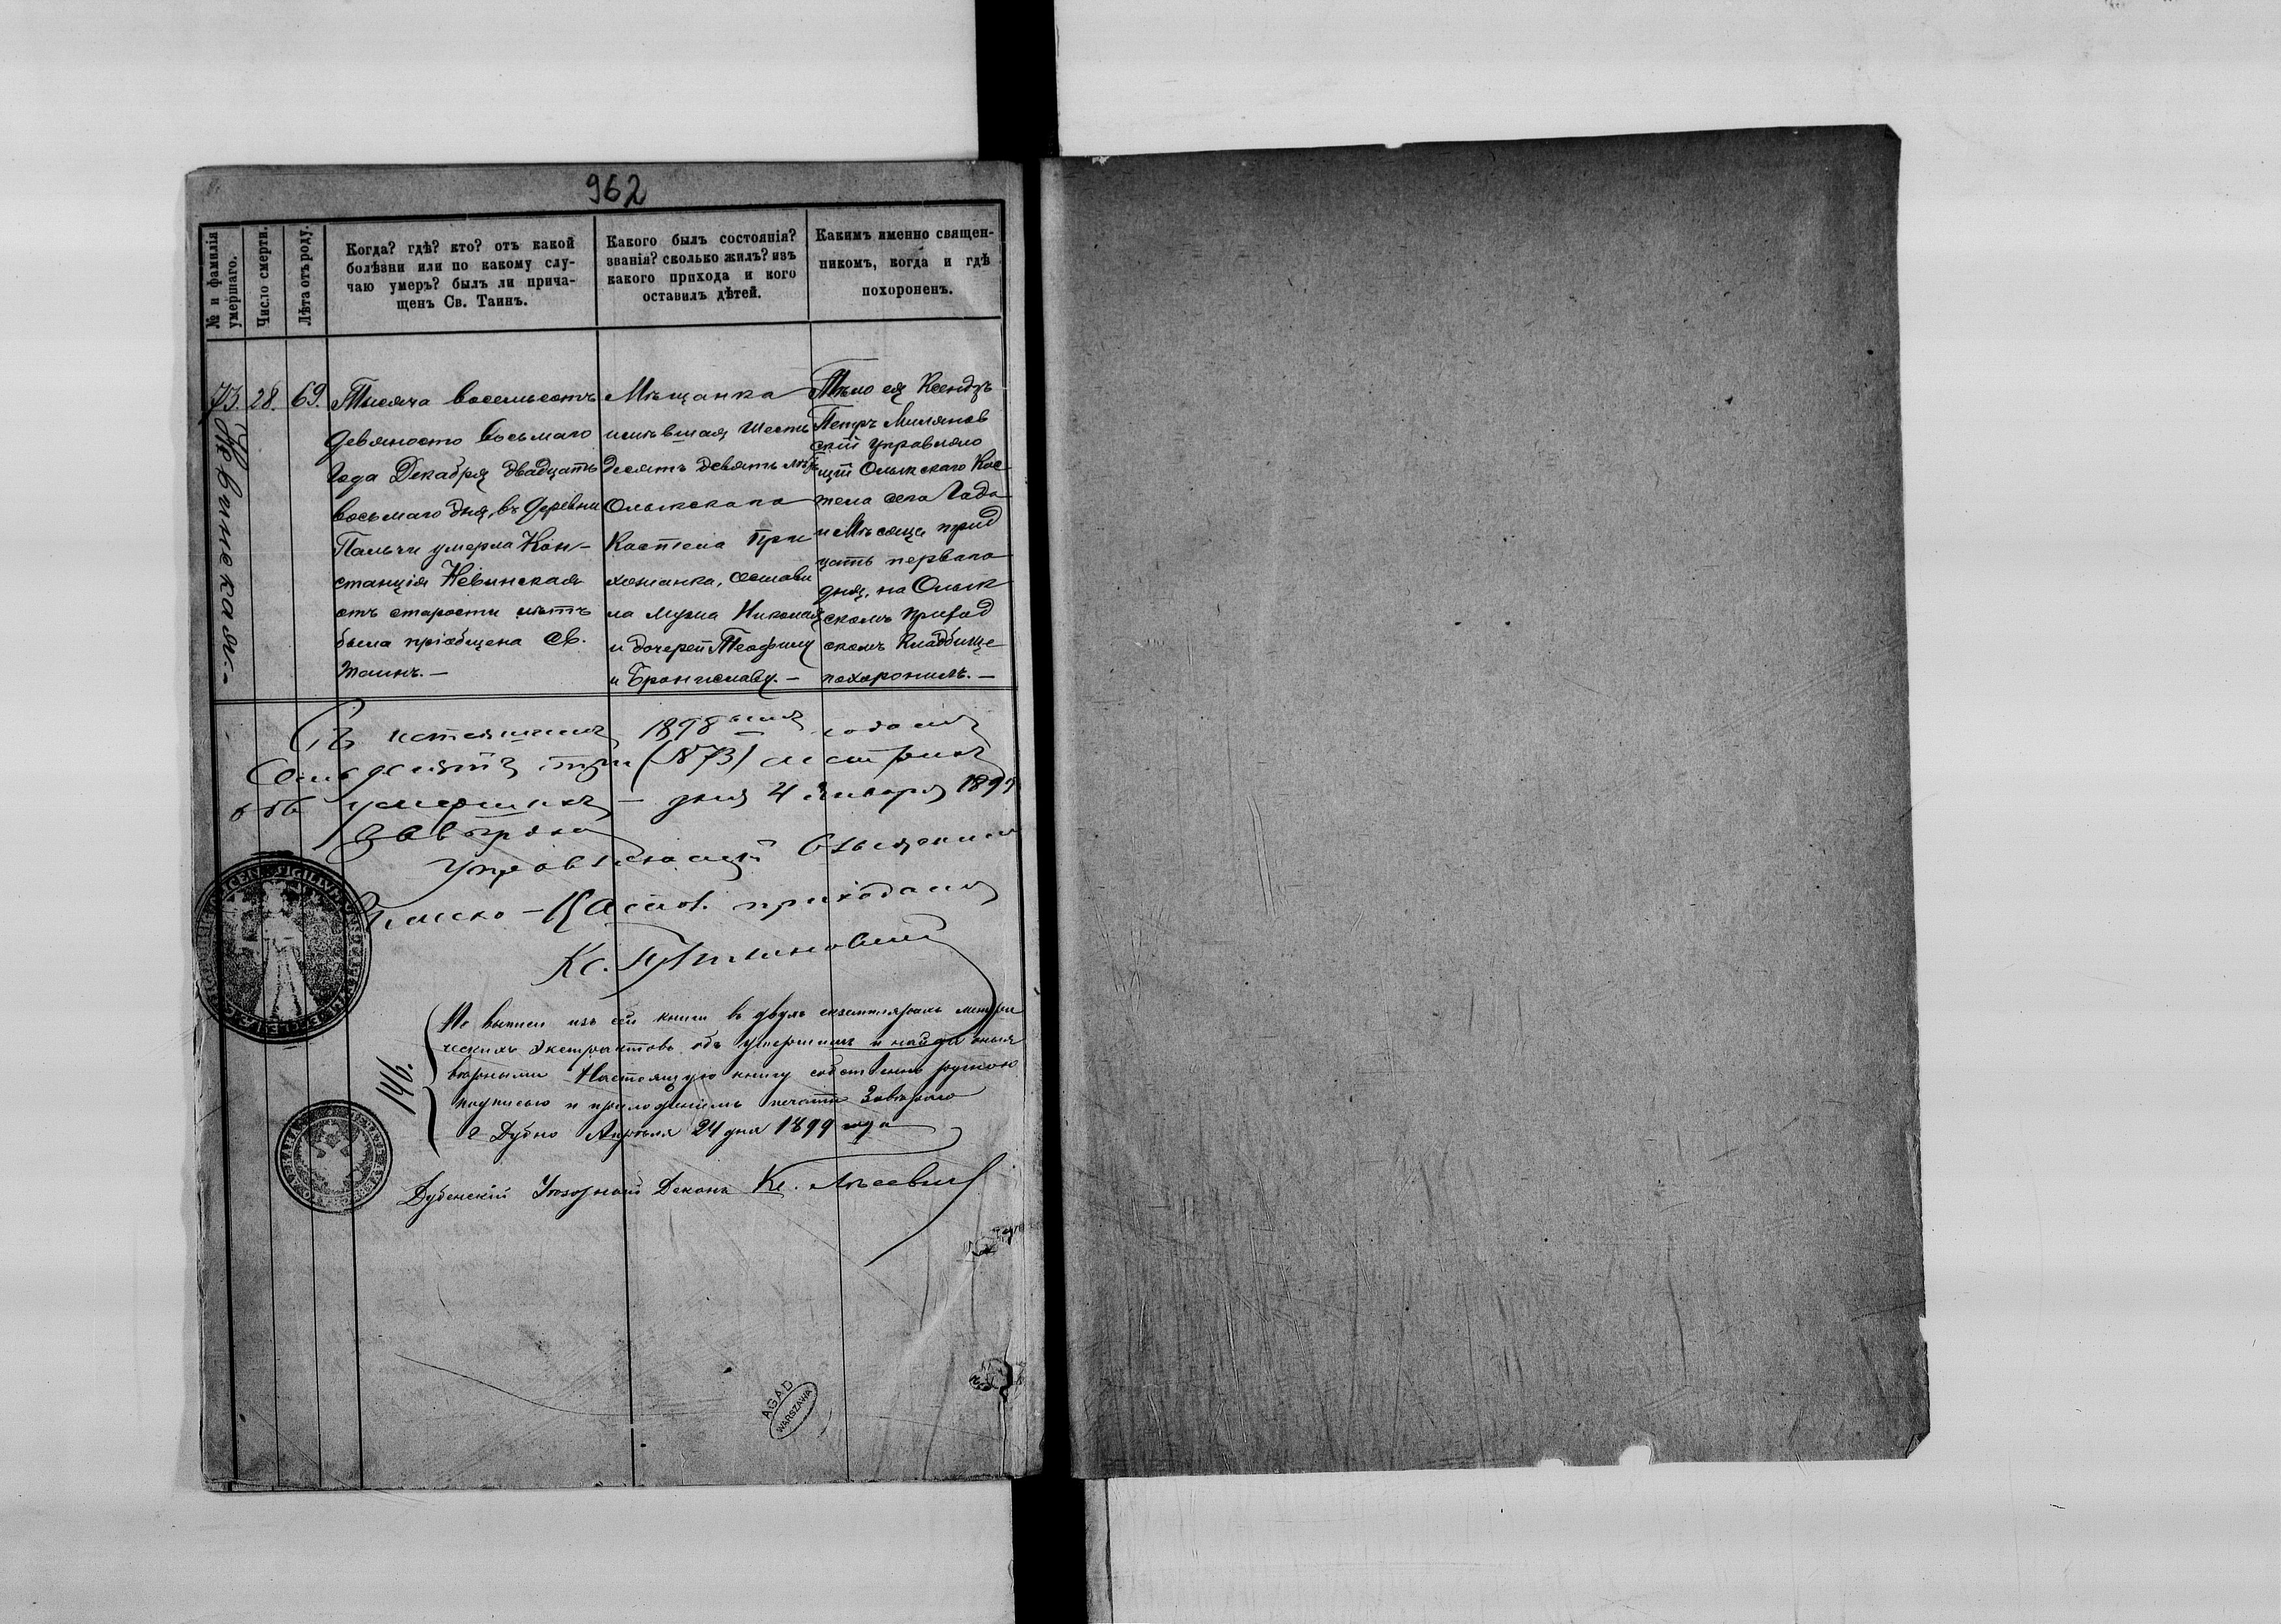 962
№ и фамилія умершаго.
Число смерти.
Лѣта отъ роду.
Когда? гдѣ? кто? отъ какой
болѣзни или по какому слу-
чаю умеръ? былъ ли прича-
щенъ Св. Таинъ.
Какого былъ состоянія?
званія? сколько жилъ? изъ
какого прихода и кого
оставилъ дѣтей.
Какимъ именно священ-
никомъ, когда и гдѣ
похороненъ.
73.
Невинская.-
28.
69.
Тысяча восемьсотъ
девяносто восьмаго
года Декабря двадцать
восьмаго дня, въ деревни
Пальчи умерла Кон-
станція Невинская
отъ старости лѣтъ
была пріобщена Св.
Таинъ.-
Мѣщанка
имѣвшая шесть
десятъ девять лѣтъ
Олыкскаго
Костела При
хожанка, Остави
ла мужа Николая
и дочерей Теофилу
и Брониславу.-
Тѣло ея Ксендзъ
Петръ Милянов
скій Управляю
щій Олыкскаго Кос
тела сего Года
и Мѣсяца трид
цать перваго
дня, на Олык
скомъ приход
скомъ Кладбище
похоронилъ.-
1898
Семьдесятъ три (№73)
умершихъ - дня 4 Января 1899
Управляющій
Римско-Катол. приходомъ
Кс. П. Миляновскій
По выписи изъ сей книги въ двухъ экземплярахъ метри
ческихъ Экстрактовъ объ умершихъ и найдя оныя
вѣрными Настоящую книгу собственно ручною
подписью и приложеніемъ печати Завѣряю
г Дубно Апрѣля 24 дня 1899 года
№
Дубенскій Уѣздный Деканъ Кс.
AGAD
WARSZAWA